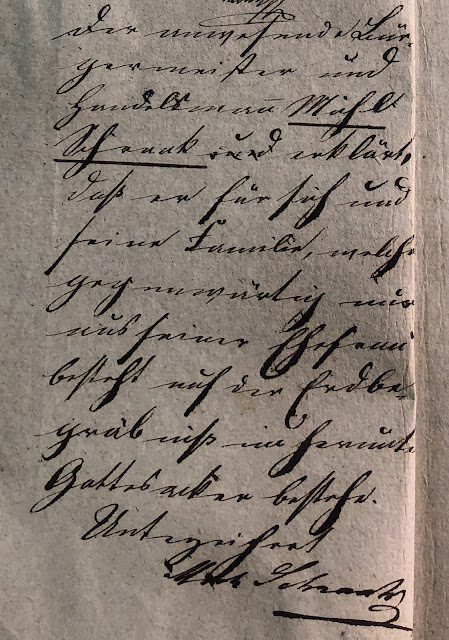 Der anwesende Bür-
germeister und
Handelsmann Michl
Schrank und erklärt,
daß er für sich und
seine Familie, welche
gegenwärtig nur
aus seiner Ehefrau
besteht auf der Erdbe-
gräbniß im
Gottesacker bestehe.
Unterzeichnet